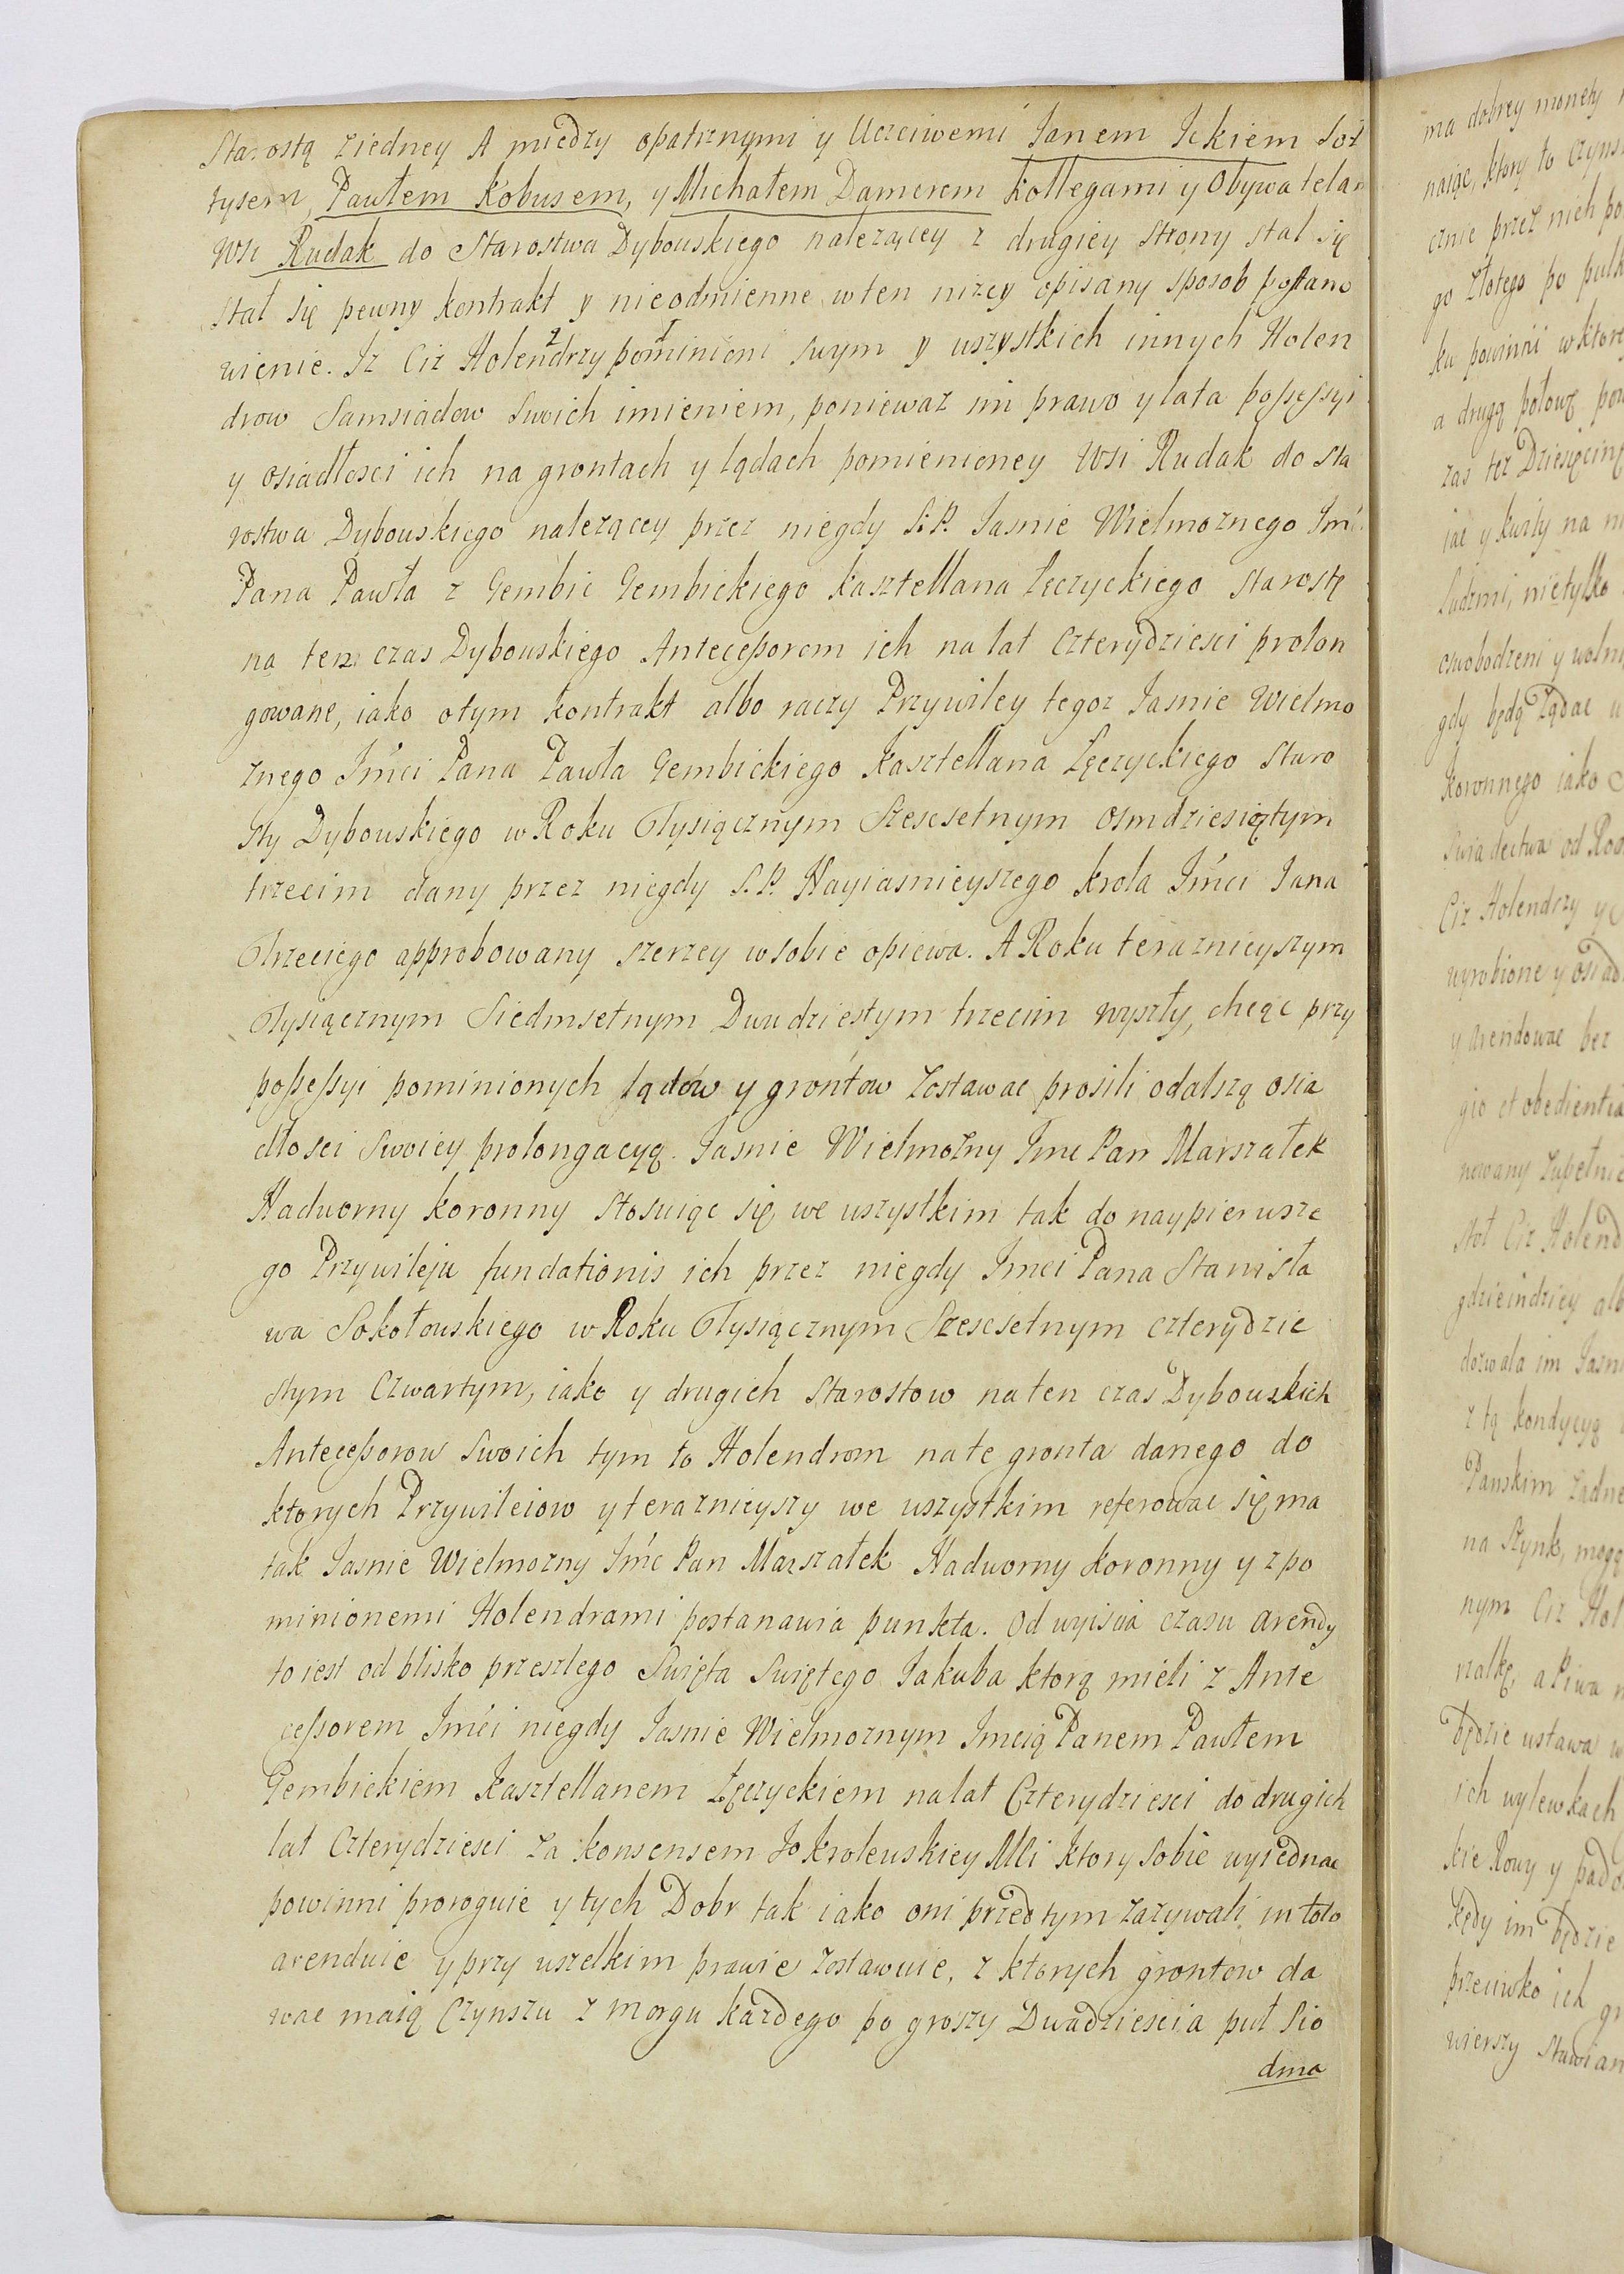 Starostą ziedney A między opatrznymi y Uczciwemi Janem Jckiem Soł
tysem, Pawłem Kobusem, y Michałem Damerem Kollegami y Obywatelam
Wsi Rudak do Starostwa Dybouskiego nalezącey z drugiey strony stał się
stał się pewny kontrakt y nieodmienne w ten nizey opisany sposob postano
wienie. Iz Ciz Holendrzy pominieni swym y uszystkich innych Holen
drow Samsiadow Swoich imieniem, poniewaz im prawo y lata possessyi
y osiadłosci ich na grontach y lądach pomienioney Wsi Rudak do sta
rostwa Dybouskiego nalezącey przez niegdy S.P. Jasnie Wielmoznego Jmć
Pana Pawła z Gembic Gembickiego kasztellana Łęczyckiego starostę
na ten czas Dybouskiego Antecessorom ich na lat Czterydziesci prolon
gowane, iako o tym kontrakt albo raczy Przywiley tegoz Jasnie Wielmo
znego Jmci Pana Pawła Gembickiego Kasztellana Łęczyckiego Staro
sty Dybouskiego w Roku Tysiącznym Szescsetnym osmdziesiątym
trzecim dany przez niegdy S.P. Nayiasnieyszego krola Jmci Jana
Trzeciego approbowany szerzey w sobie opiewa. A Roku teraznieyszym
Tysiącznym Siedmsetnym Dwudziestym trzecim wyszły, chcąc przy
possessyi pominionych lądow y grontow zostawac prosili o dalszą osia
dłosci Swoiey prolongacyą. Jasnie Wielmozny Jmc Pan Marszałek
Nadworny koronny stosuiąc się we uszystkim tak do naypierusze
go Przywileju fundationis ich przez niegdy Jmci Pana Stanisła
wa Sokołouskiego w Roku Tysiącznym Szescsetnym czterydzie
stym Czwartym, iako y drugich Starostow na ten czas Dybouskich
Antecessorow Swoich tym to Holendrom na te gronta danego do
ktorych Przywileiow y teraznieyszy we uszystkim referowac się ma
tak Jasnie Wielmozny Jmć Pan Marszałek Nadworny koronny y z po
minionemi Holendrami postanawia punkta. Od wyiscia czasu arendy
to iest od blisko przeszlego Swięta Swiętego Jakuba ktorą mieli z Ante
cessorem Jmci niegdy Jasnie Wielmoznym Jmcią Panem Pawłem
Gembickiem Kasztellanem Łęczyckiem na lat Czterydziesci do drugich
lat Czterydziesci za konsensem Jo Kroleuskiey Mci ktory sobie wyiednac
powinni proroguie y tych Dobr tak iako oni przed tym zazywali in toto
arenduie y przy uszelkim prawie zostawuie, z ktorych grontow da
wac maią Czynszu z morgu kazdego po groszy Dwadziescia puł Sio
dma
ma dobrey monety
naiąc, ktory to Czyns
cznie przez nich po
go złotego po pułk
ku powinni w ktore
a drugą połowę pow
zas tez Dziesięcinę
iac y kwity na
ludzmi, nietylko
oswobodzeni y wolni
gdy będą ządac
Koronnego iako
Swiadectwa od
Ciz Holendrzy y
wyrobione y osiad
y arendowac bez
gio et obedientia
nowany zupełnie
stot Ciz Holend
gdzieindziey alb
dozwala im Jasni
z tą kondycyą
Panskim zadne
na Szynk, mogą
nym Ciz Hol
rzalkę, a Piwa
będzie ustawa
ich wylewkach
kie Rowy y
kędy im będzie
przeciwko ich gr
wierszy Stawian